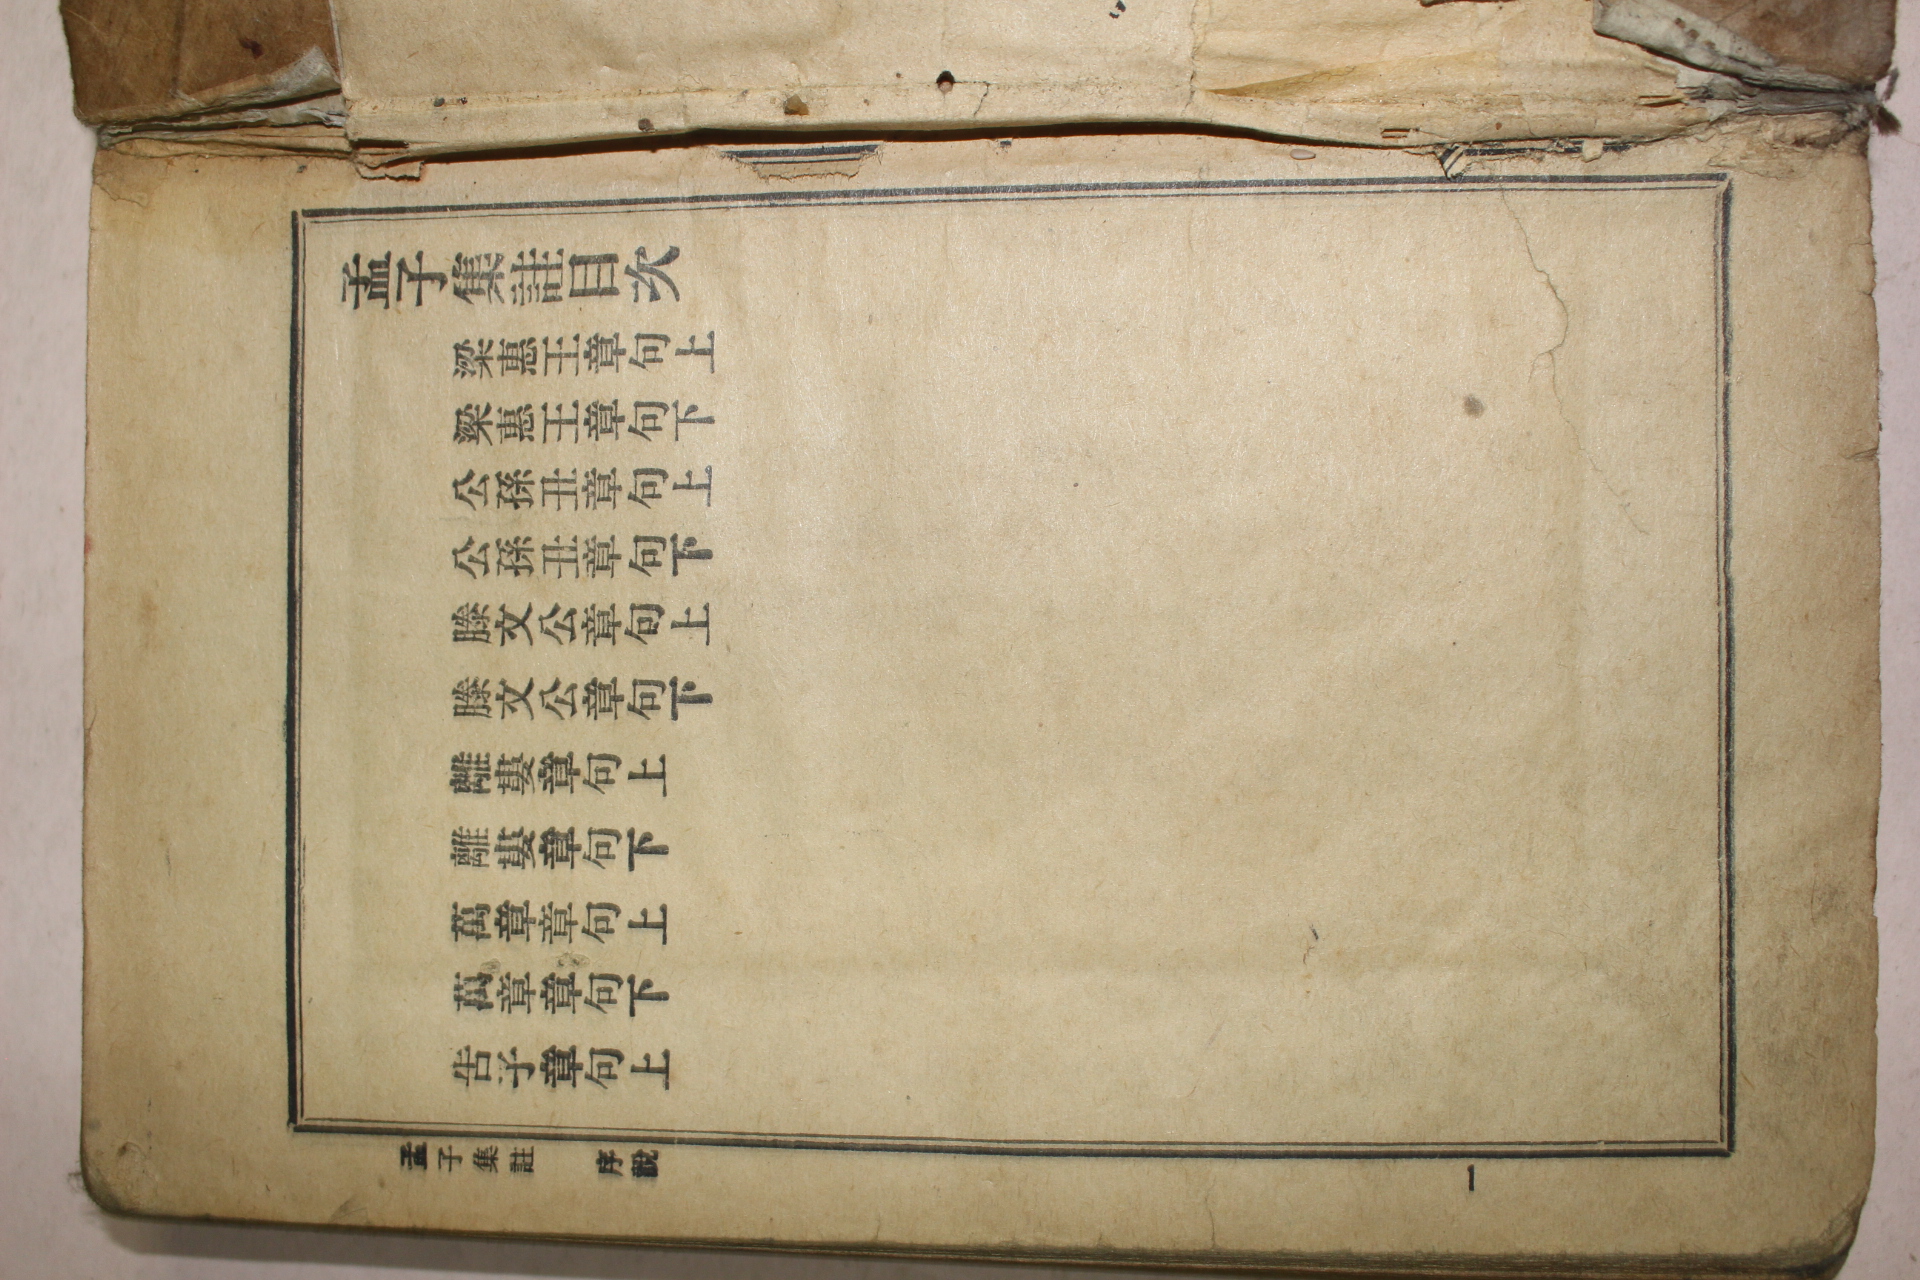 孟子集註目次
梁惠王章句上
梁惠王章句下
公孫丑章句上
公孫丑章句下
滕文公章句上
滕文公章句下
離婁章句上
離婁章句下
萬章章句上
萬章章句下
告子章句上
孟子集註 序說
1